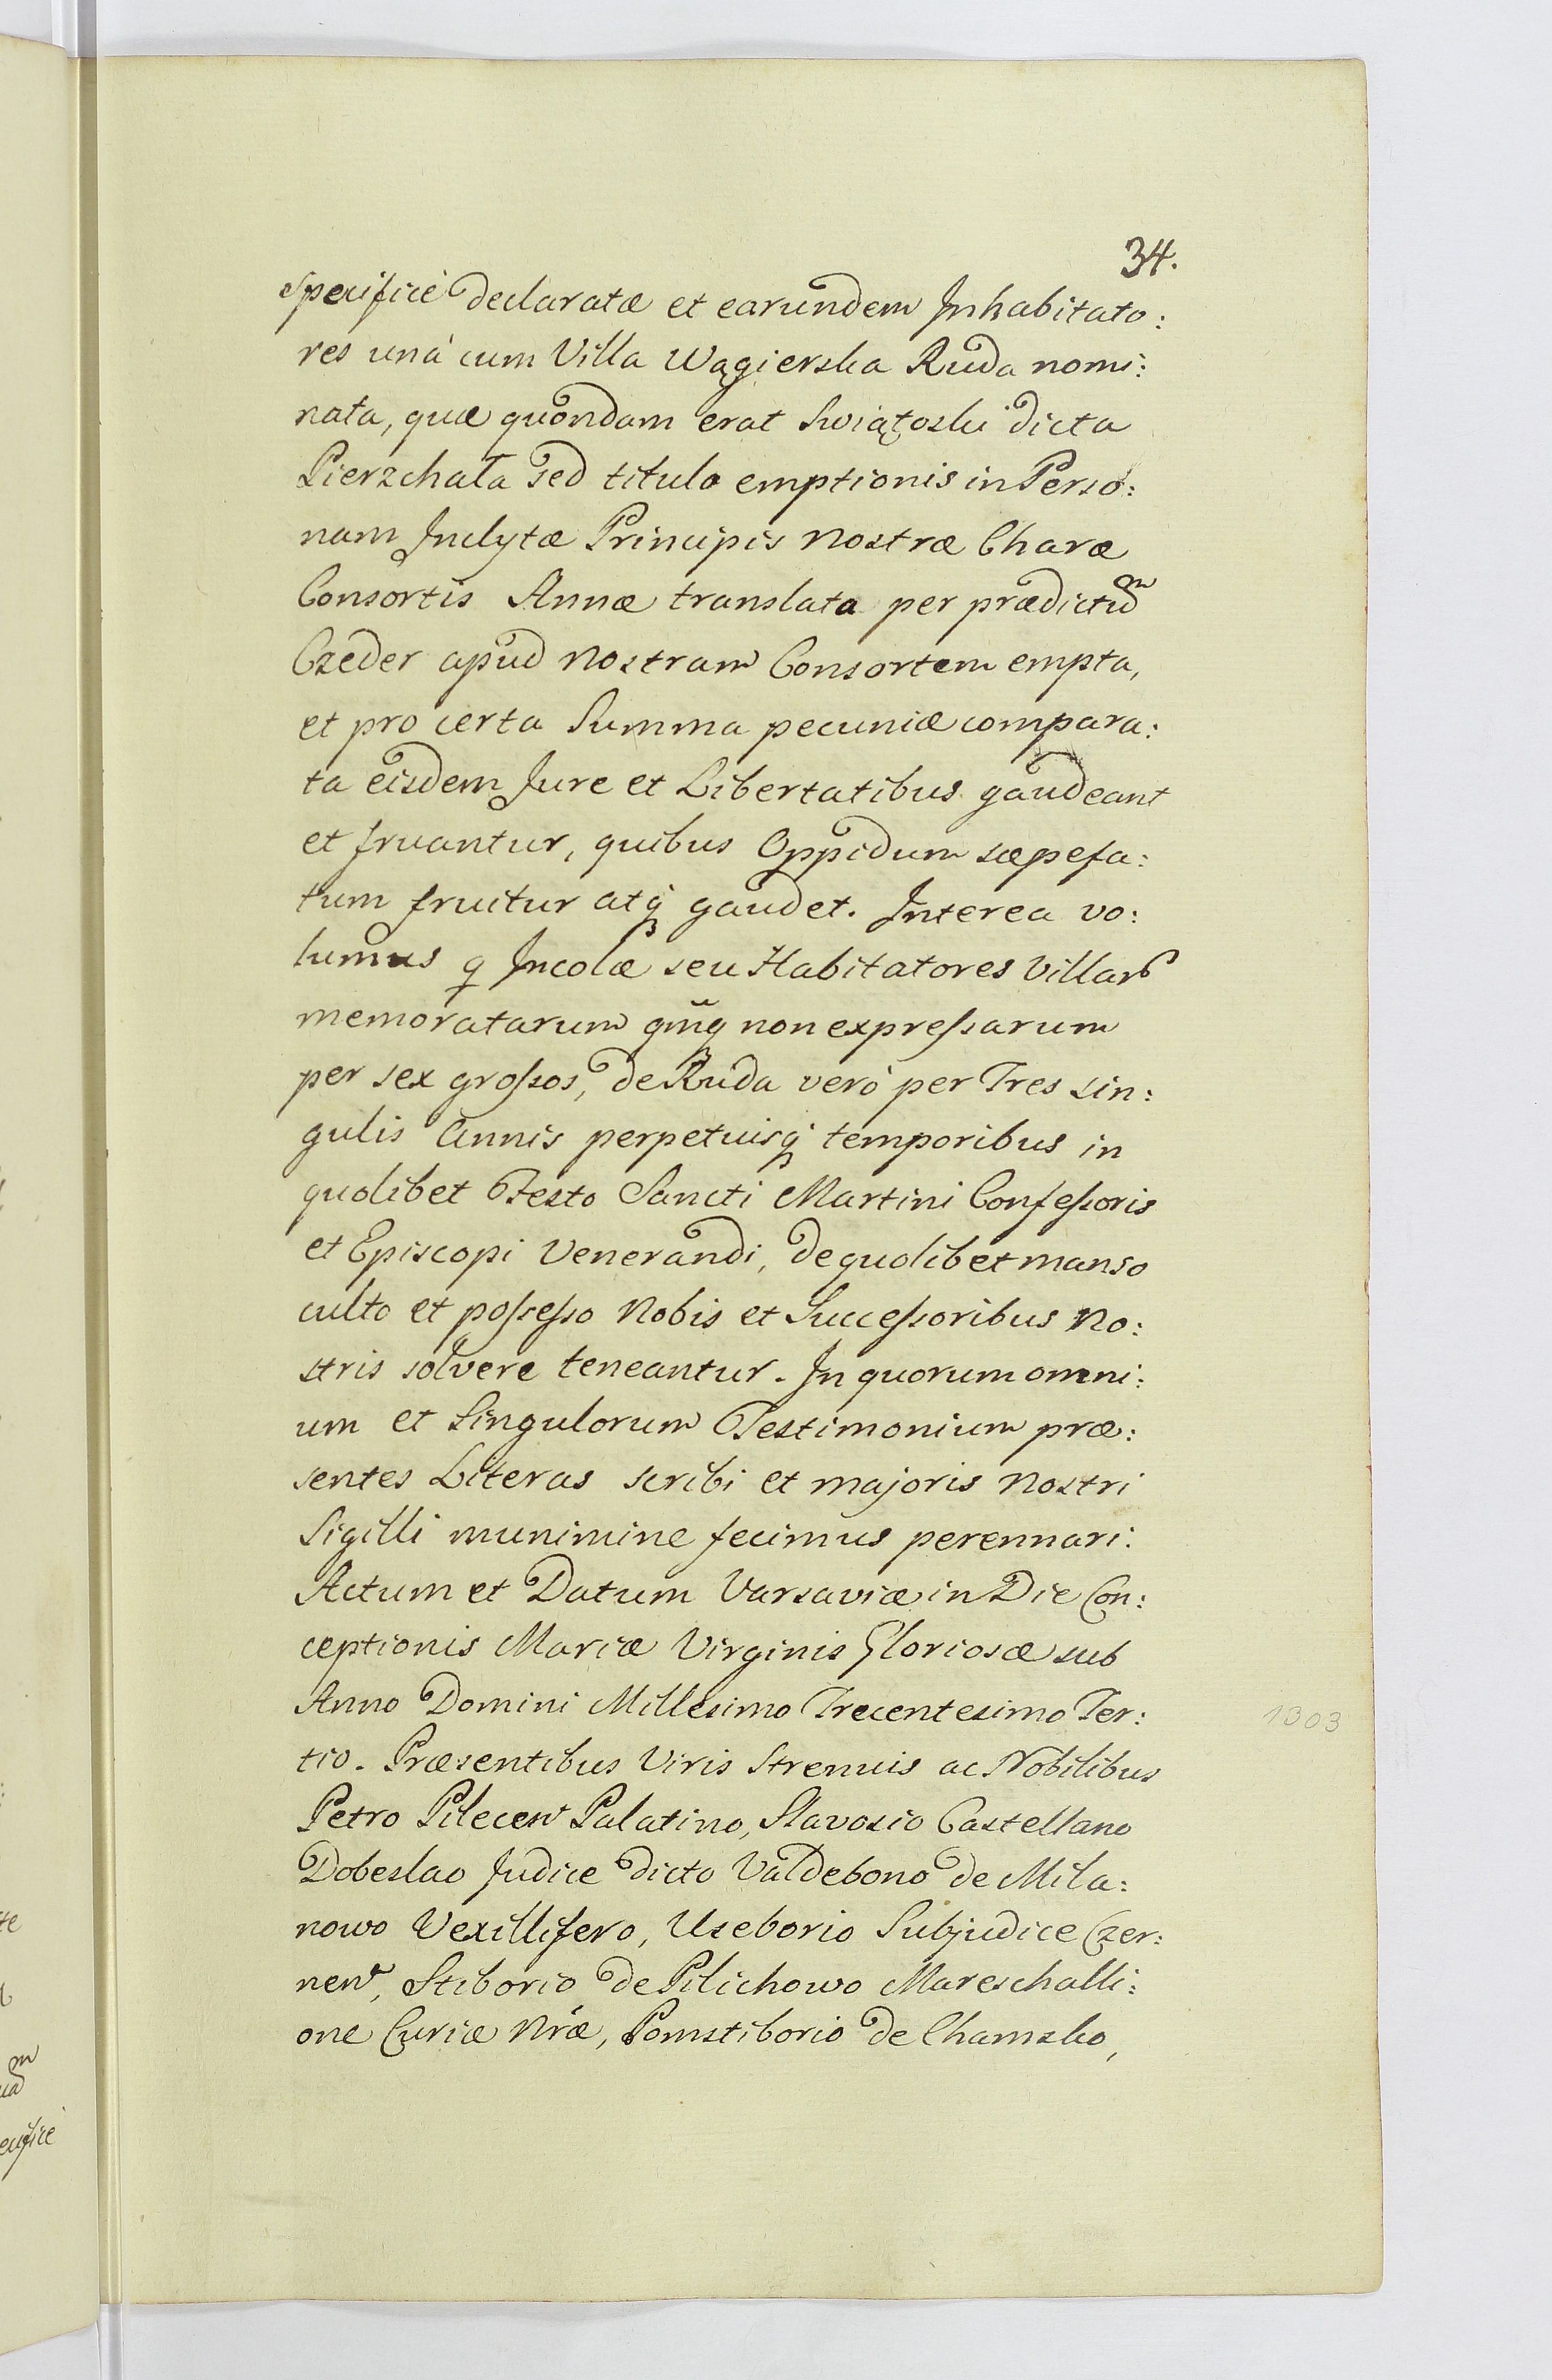 34.
specificè declaratæ et earundem Inhabitato:
res unà cum Villa Wągierska Ruda nomi:
nata, quæ quondam erat Swiątoski dicta
Pierzchała sed titulo emptionis in Perso:
nam Inclytæ Principis nostræ Charæ
Consortis Annæ translata per prædictũm
Czeder apud nostram Consortem empta,
et pro certa Summa pecuniæ compara:
ta eisdem Jure et Libertatibus gaudeant
et fruantur, quibus Oppidum sæpefa:
tum fruitur atq̃ gaudet. Interea vo:
lumus q Incolæ seu Habitatores Villar
memoratarum non expressarum
per sex grossos, de Ruda verò per Tres sin:
gulis Annis perpetuisq̃ temporibus in
quolibet Festo Sancti Martini Confessoris
et Episcopi Venerandi, de quolibet manso
culto et possesso Nobis et Successoribus No:
stris solvere teneantur. In quorum omni:
um et Singulorum Testimonium præ:
sentes Literas scribi et majoris nostri
Sigilli munimine fecimus perennari.
Actum et Datum Varsaviæ in Die Con:
ceptionis Mariæ Virginis Gloriosæ sub
Anno Domini Millesimo Trecentesimo Ter:
1303
tio. Præsentibus Viris Strenuis ac Nobilibus
Petro Pilecen Palatino, Slavosio Castellano
Dobeslao Judice dicto Valdebono de Mila:
nowo Vexillifero, Useborio Subjudice Czer:
nen, Stiborio de Pilichowo Mareschalli:
one Curiæ Nræ, Pomstiborio de Chamsko,